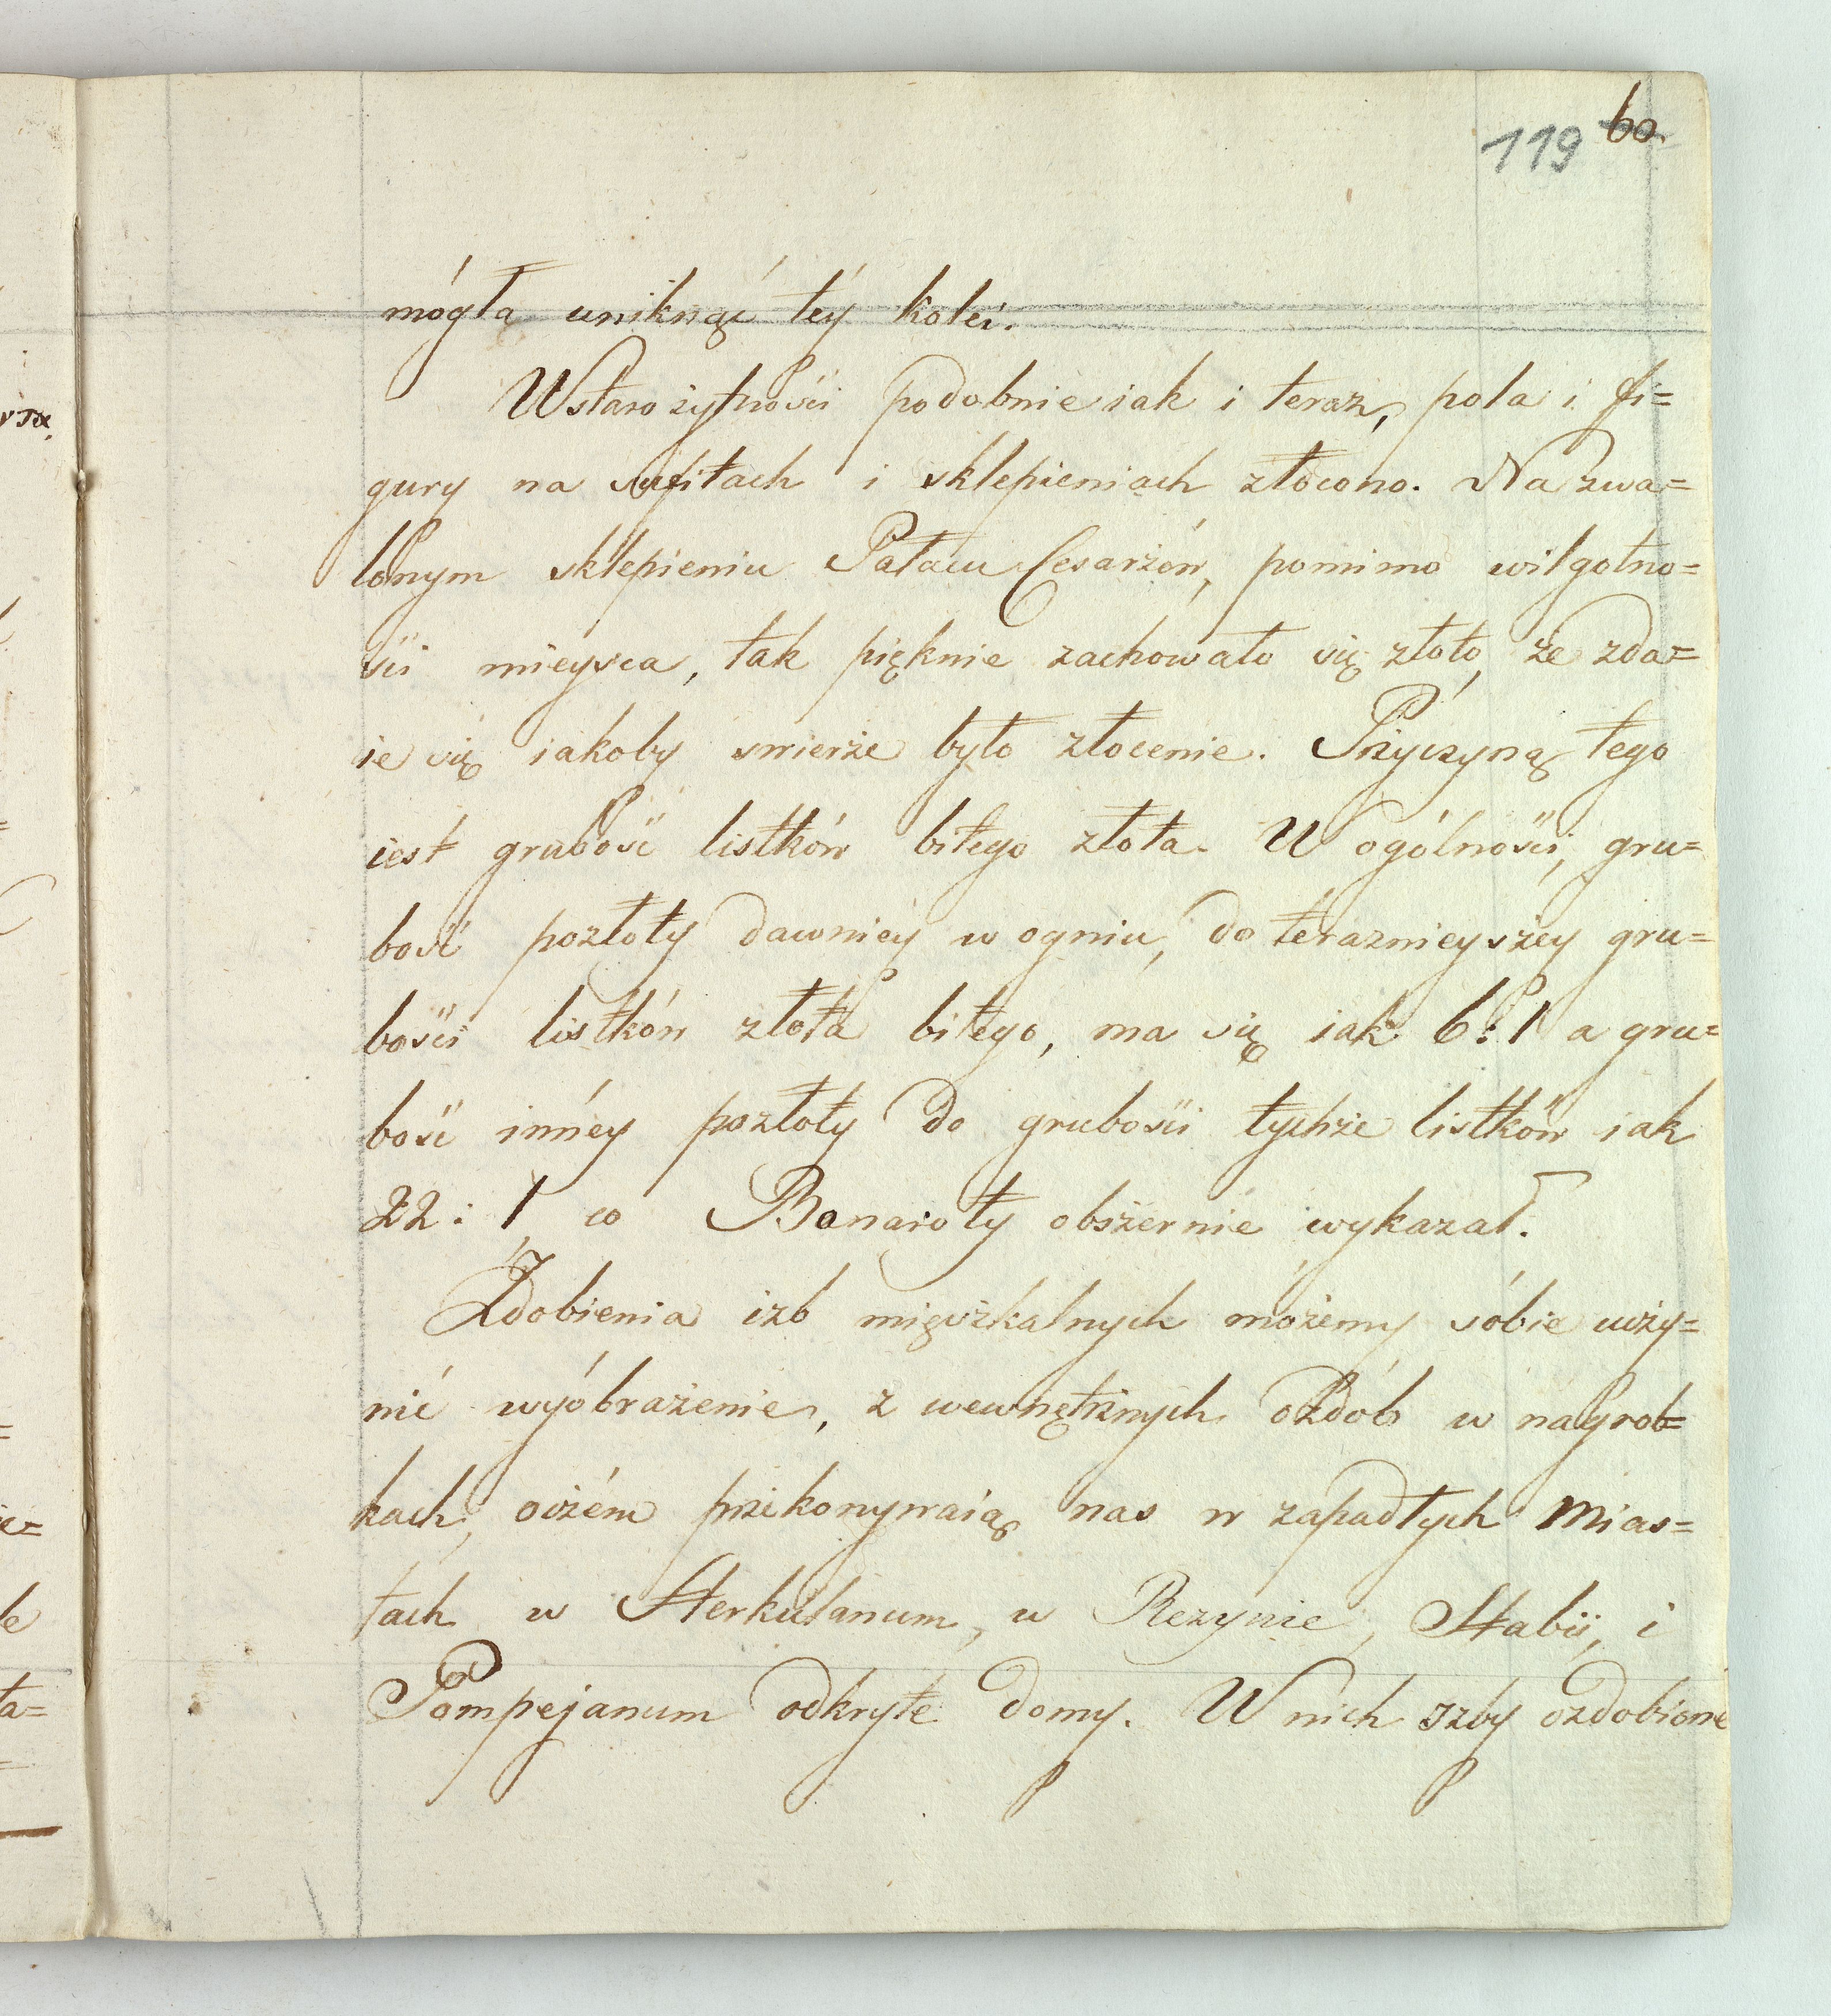 119 60.
mógła uniknąć téy kolei.
Wstarożytności podobnie iak i teraz, pola i fi=
gury na sufitach i sklepieniach złocono. Na zwa=
lonym sklepieniu Pałacu Cesarzów, pomimo wilgotno=
ści mieysca, tak pięknie zachowało się złoto, że zda=
ie się iakoby swieże było złocenie. Przyczyną tego
iest grubość listków bitego złota. W ogólności, gru=
bość pozłoty dawniey w ogniu, do teraznieyszey gru=
bości listków złota bitego, ma się iak 6:1 a gru=
bość innéy pozłoty do grubości tychże listków iak
22:1, co Bonaroty obszernie wykazał.
Zdobienia izb mięszkalnych możemy sobie uczy=
nić wyobrażenie, z wewnętrznych ozdób w nagrob=
kach, oczém przekonywaią nas w zapadłych mias=
tach w Herkulanum, w Rezynie, Stabii, i
Pompejanum odkryte domy. W nich izby ozdobione